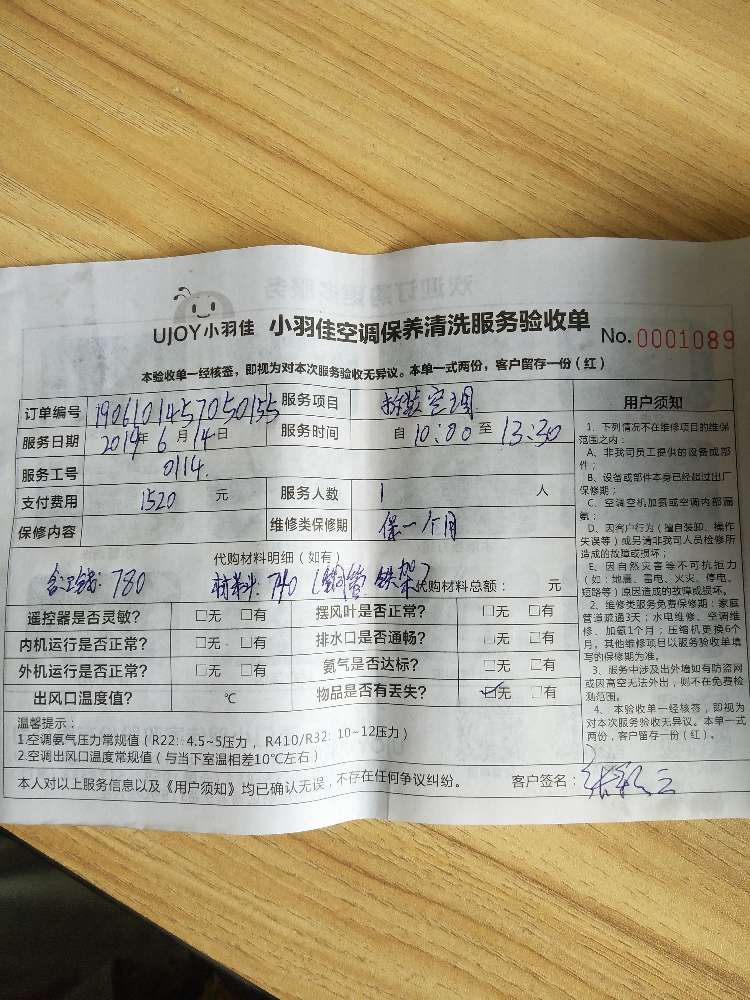 UJOY小羽佳 小羽佳空调保养清洗服务验收单 No.0001089
本验收单一经核签，即视为对本次服务验收无异议。本单一式两份，客户留存一份（红）
订单编号 1906101457050155 服务项目 拆装空调
服务日期 2019年6月14日 服务时间 自10:00至13:30
服务工号 0114
支付费用 1520 元 服务人数 1 人
保修内容 维修类保修期 保一个月
代购材料明细（如有）
含工钱：780 材料：740（铜管 铁架） 代购材料总额： 元
遥控器是否灵敏? □无 □有 摆风叶是否正常? □无 □有
内机运行是否正常? □无 □有 排水口是否通畅? □无 □有
外机运行是否正常? □无 □有 氨气是否达标? □无 □有
出风口温度值? ℃ 物品是否有丢失? ☑无 □有
温馨提示：
1.空调氨气压力常规值（R22：4.5~5压力，R410/R32：10~12压力）
2.空调出风口温度常规值（与当下室温相差10℃左右）
本人对以上服务信息以及《用户须知》均已确认无误，不存在任何争议纠纷。 客户签名：张彩云
用户须知
1、下列情况不在维修项目的维保
范围之内：
A、非我司员工提供的设备或部
件；
B、设备或部件本身已经超过出厂
保修期；
C、空调空机加氨或空调内部漏
氨；
D、因客户行为（擅自装卸、操作
失误等）或另请非我司人员检修所
造成的故障或损坏；
E、因自然灾害等不可抗拒力
（如：地震、雷电、火灾、停电、
短路等）原因造成的故障或损坏。
2、维修类服务免费保修期：家庭
管道疏通3天；水电维修、空调维
修、加氨1个月；压缩机更换6个
月。其他维修项目以服务验收单填
写的保修期为准。
3、服务中涉及出外墙如有防盗网
或因高空无法外出，则不在免费检
测范围。
4、本验收单一经核签，即视为
对本次服务验收无异议。本单一式
两份，客户留存一份（红）。